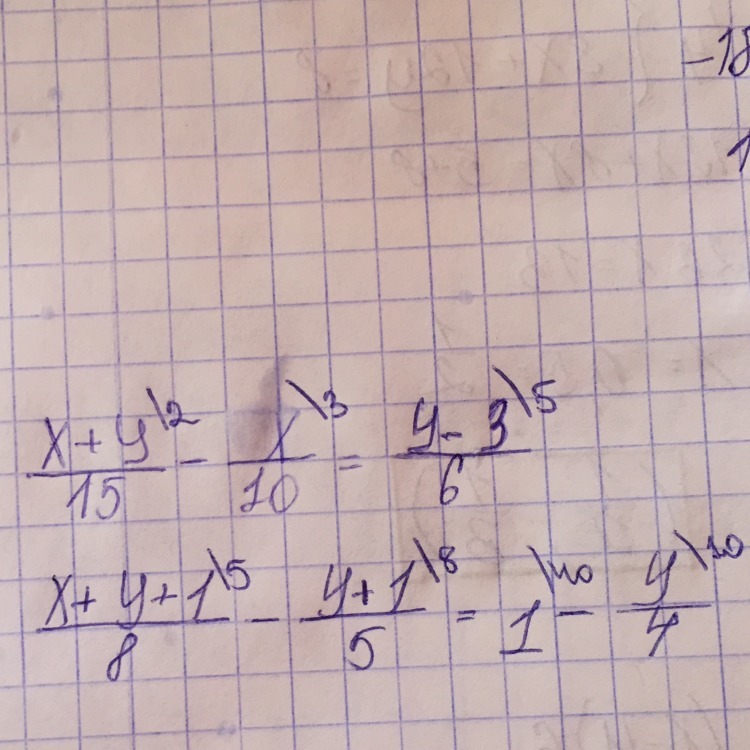 -18
1
\frac{x+y^{\backslash 2}}{15} - \frac{x^{\backslash 3}}{10} = \frac{y-3^{\backslash 5}}{6}
\frac{x+y+1^{\backslash 5}}{8} - \frac{y+1^{\backslash 8}}{5} = 1^{\backslash 40} - \frac{y^{\backslash 10}}{4}